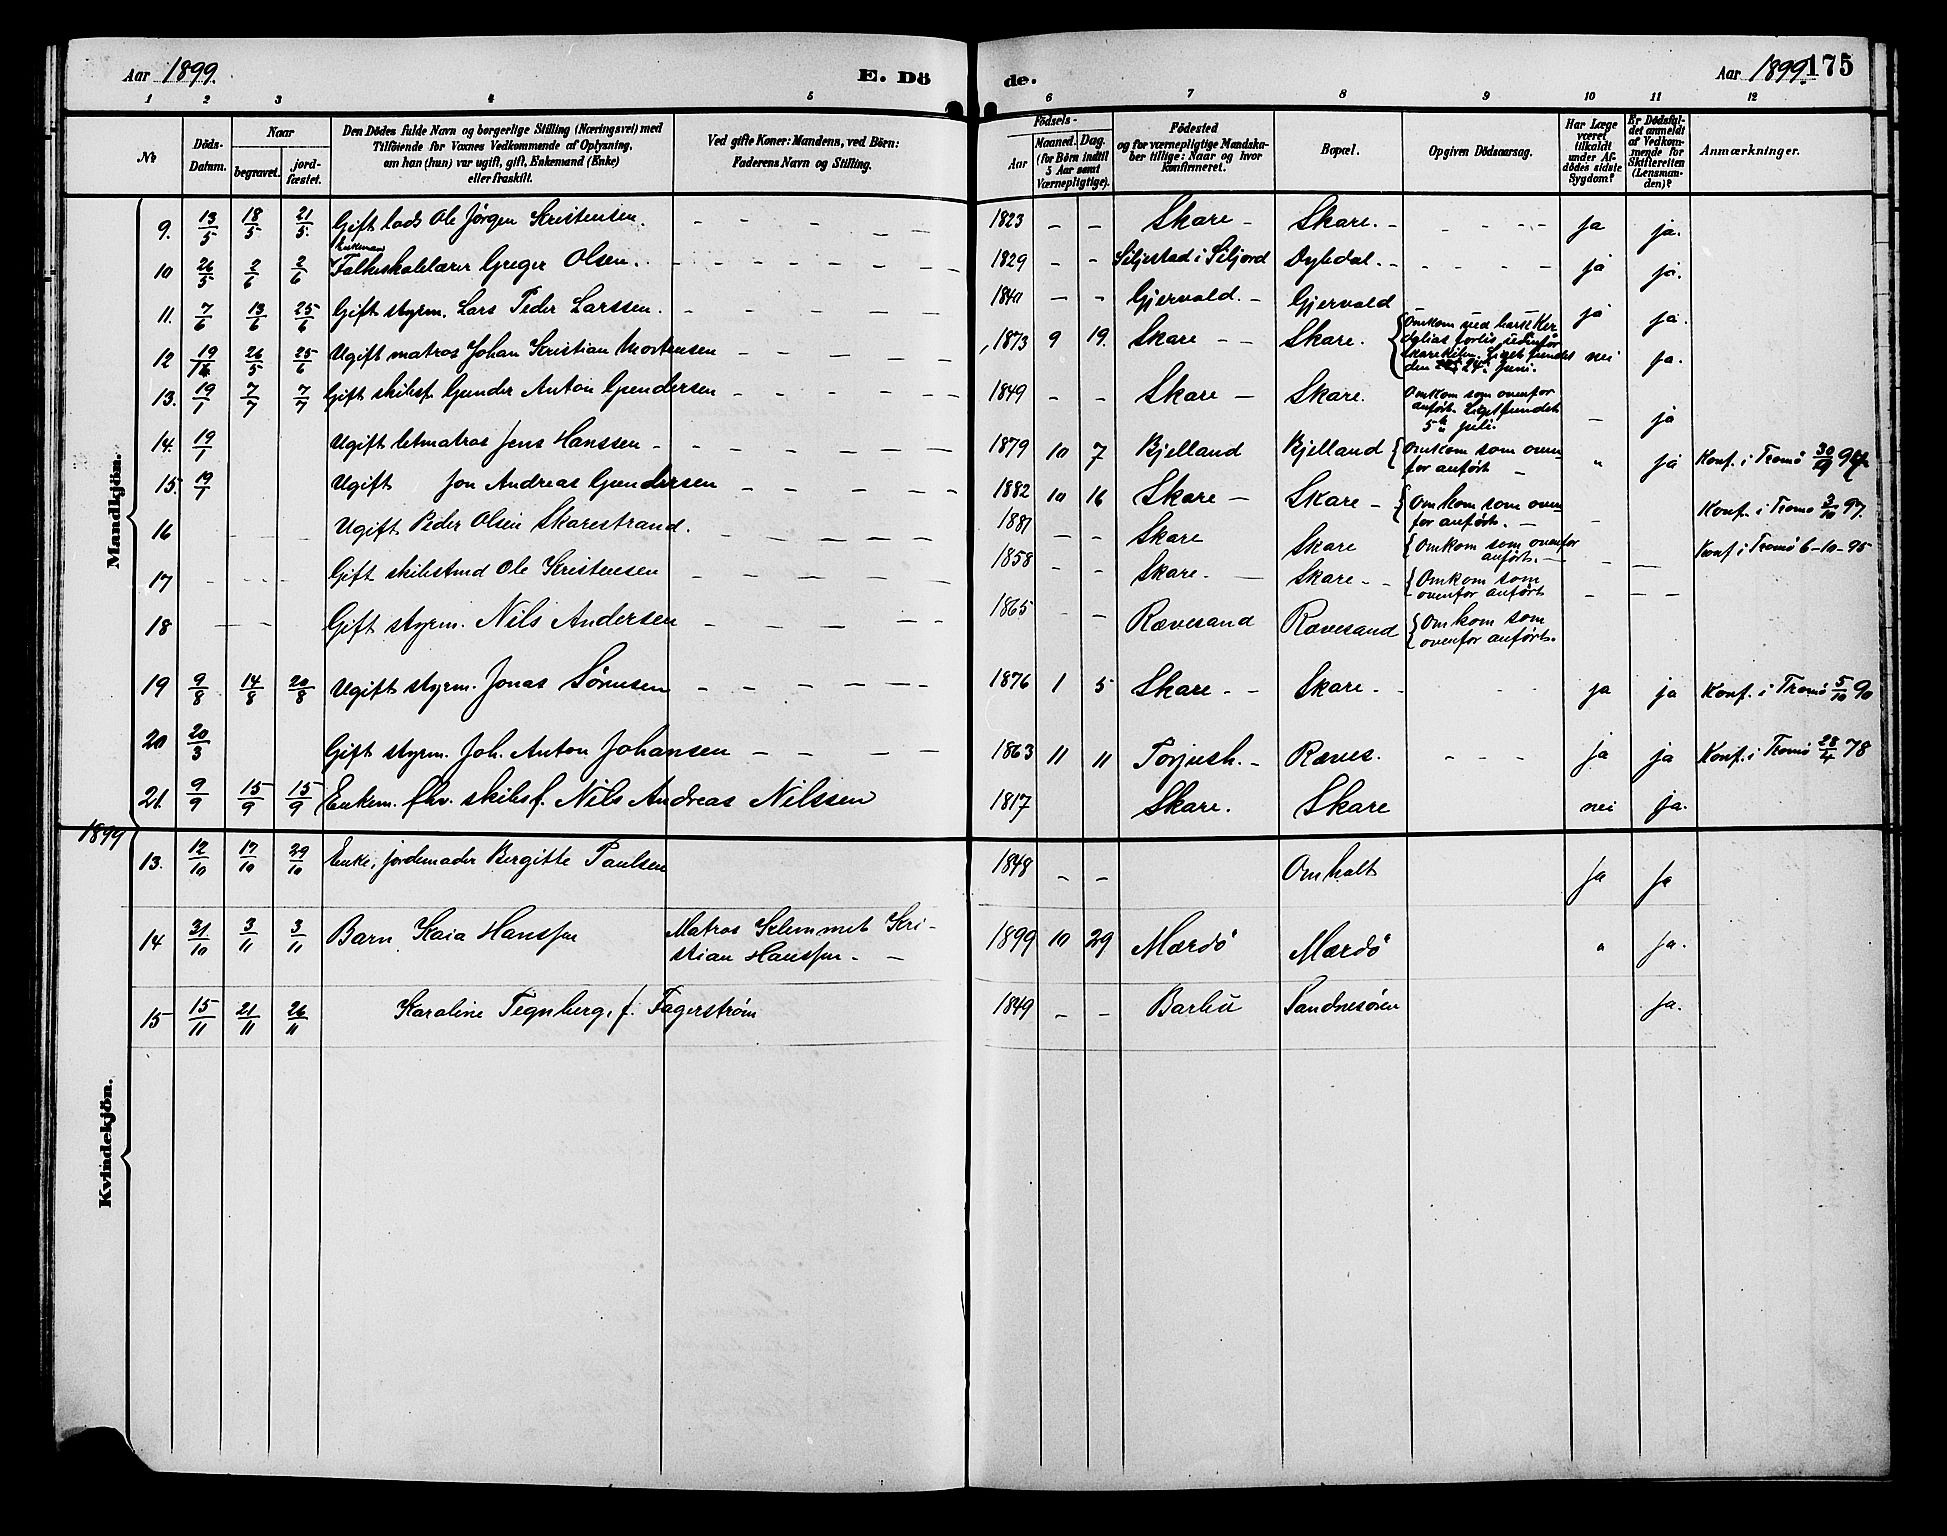 Aar 1899. E. Dö de. Aar 1899. 175
1 2 3 4 5 6 7 8 9 10 11 12
№
Döds-Datum.
Naar
begravet.
jord-fæstet.
Den Dödes fulde Navn og borgerlige Stilling (Næringsvei) med
Tilföiende for Voxnes Vedkommende af Oplysning,
om han (hun) var ugift, gift, Enkemand (Enke)
eller fraskilt.
Ved gifte Koner: Mandens, ved Börn:
Faderens Navn og Stilling.
Födsels-
Aar
Maaned. Dag.
(for Börn indtil
5 Aar samt
Værnepligtige).
Födested
og for værnepligtige Mandska-
ber tillige: Naar og hvor
konfirmeret.
Bopæl.
Opgiven Dödsaarsag.
Har Læge
været
tilkaldt
under Af-
dödes sidste
Sygdom?
Er Dödsfal-
det anmeldt
af Vedkom-
mende for
Skifteretten
(Lensman-
den)?
Anmærkninger.
Mandkjön.
9. 13/5 18/5 21/5 Gift lods Ole Jörgen Kristensen. - - - - - 1823 - - Skare - Skare. - - - - - ja ja.
Enkeman
10 26/5 2/6 2/6 Folkeskolelærer Greger Olsen. - - - - - 1829 - - Siljestad i Siljord Dybdal. - - - - - ja ja.
11. 7/6 13/6 25/6 Gift styrm. Lars Peder Larssen. - - - - - - - Gjervold. - Gjervold - ja ja.
12 19/1 26/5 25/6 Ugift matros Johan Kristian Mortensen - - - - - 1873 9 19. Skare - - Skare. Omkom ved bark
forlis udenfor
Liget fundet
den 24. Juni. nei ja.
13. 19/1 7/7 7/7 Gift skibsf. Gunder Anton Gundersen - - - - - 1849 - - Skare - Skare. Omkom som ovenfor
anfört. Liget fundet
5te juli. - ja
14. 19/1 Ugift letmatros Jens Hanssen - - - - - 1879 10 7 Bjelland Bjelland Omkom som oven-
for anfört - " ja Konf. i Tromö 30/9 94
15. 19/1 Ugift Jon Andreas Gundersen - - - - - 1882 10 16 Skare - Skare - Omkom som oven-
for anfört. - - Konf. i Tromö 3/10 97.
16 - - - - Ugift Peder Olsen Skarestrand. - - - - - 1881 - - Skare Skare Omkom som ovenfor
anfört. - - - Konf. i Tromö 6-10-95
17 - - - - Gift skibstmd Ole Kristensen - - - - - 1858 - - Skare. - Skare. - - Omkom som
ovenfor anfört - - -
18 - - - Gift styrm. Nils Andersen - - - - - 1865 - - Rævesand Rævesand Omkom som
ovenfor anfört.
19 9/8 14/8 20/8 Ugift styrm. Jonas Sörensen - - - - - 1876 1 5 Skare. - - Skare. - - - ja ja Konf. i Tromö 5/10 90
20 20/3 Gift styrm. Joh. Anton Johansen - - - - 1863 11 11 Torjush. - Ræves. - - - ja ja Konf. i Tromö 28/4 78
21. 9/9 15/9 15/9 Enkem. fhv. skibsf. Nils Andreas Nilssen 1817 Skare. Skare nei ja.
1899
Kvindekjön.
13. 12/10 17/10 29/10 Enke, jordemoder Bergitte Paulsen 1848 - - Omholt ja ja
14 31/10 3/11 3/11 Barn Kaia Hanssen Matros Klemmet Kri-
stian Hanssen - - 1899 10 29 Mærdö Mærdö " ja.
15 15/11 21/11 26/11 Karoline Tegnberg, f. Fagerström 1849 - - Barbu Sandnesöien ja.